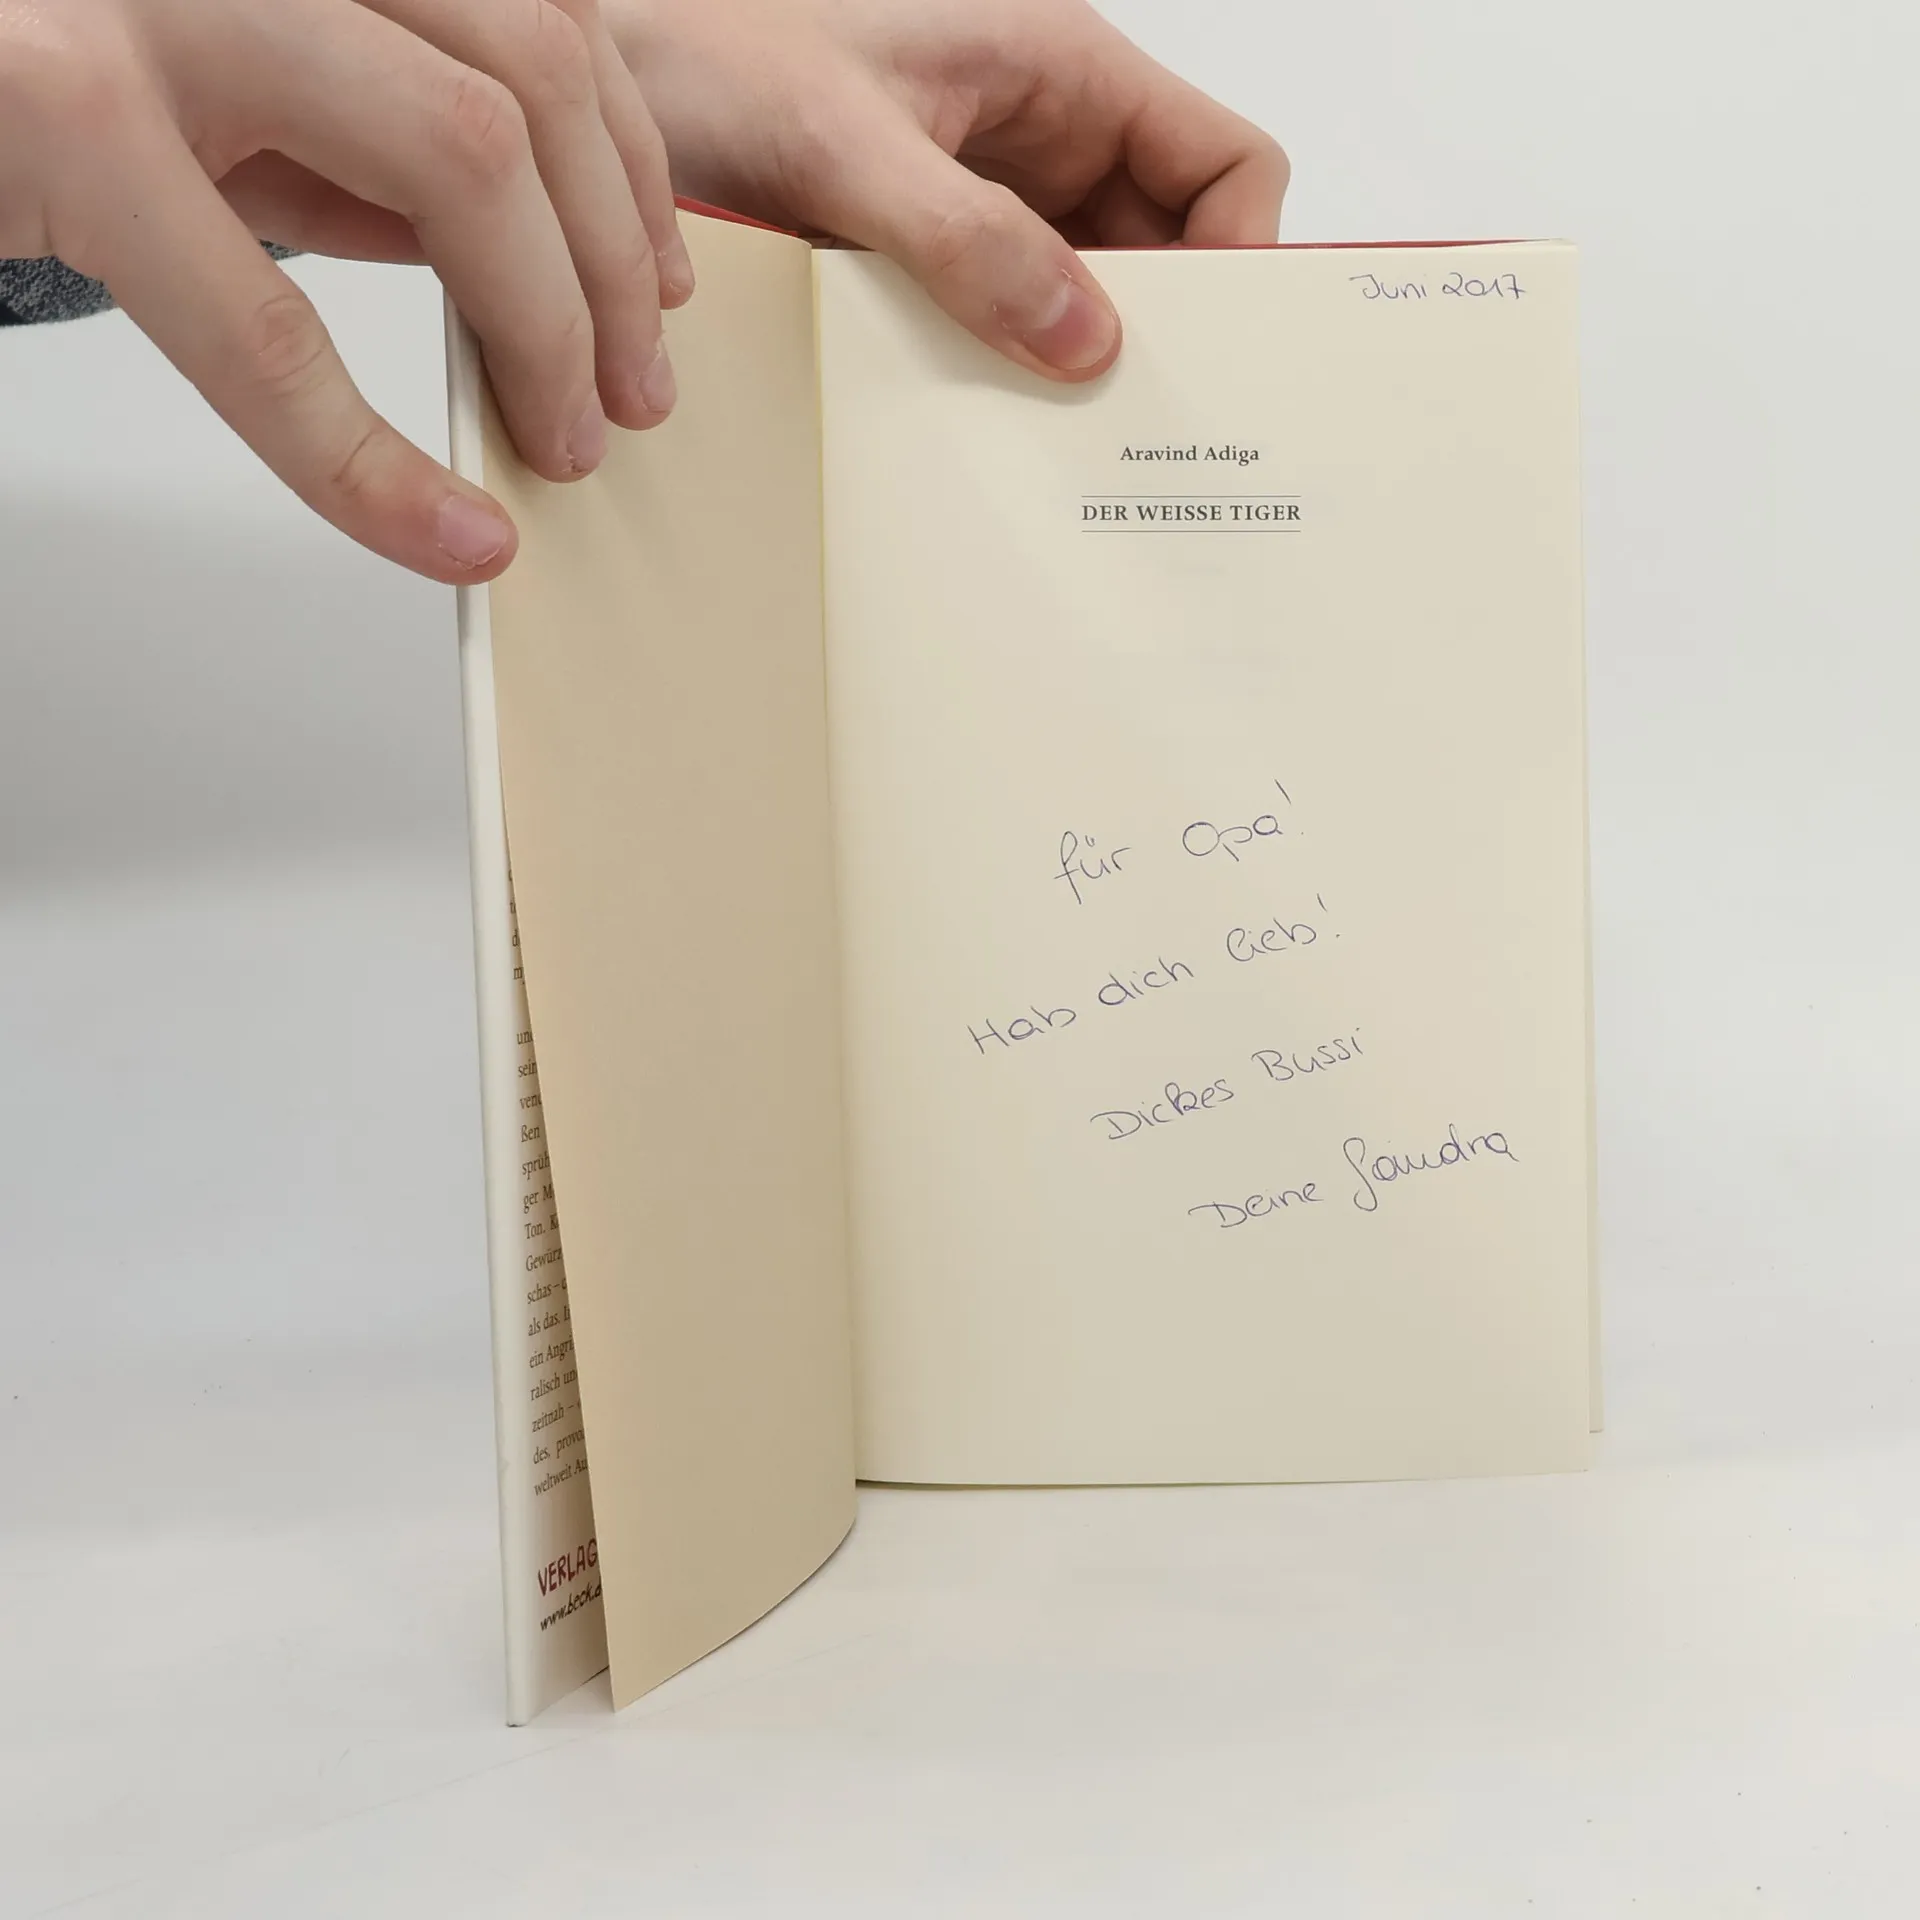 Juni 2017
Aravind Adiga
DER WEISSE TIGER
für Opa!
Hab dich lieb!
Dickes Bussi
Deine Sandra
un
sein
ßen
sprüh
ger M
Ton. K
Gewürz
schas –
als das. I
ein Angri
ralisch un
zeitnah –
des, provo
weltweit Au
VERLAG
www.beck.d